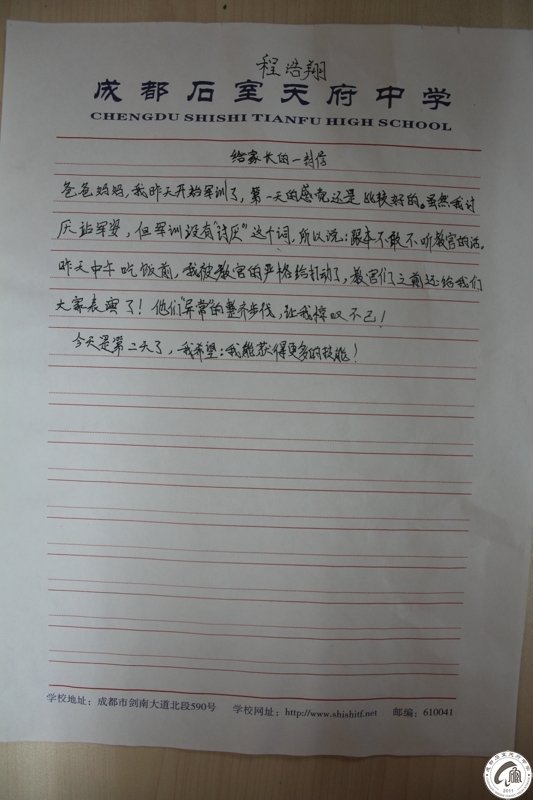 程浩翔
成都石室天府中学
CHENGDU SHISHI TIANFU HIGH SCHOOL
给家长的一封信
爸爸妈妈，我昨天开始军训了，第一天的感觉还是比较好的。虽然我讨
厌站军姿，但军训没有“讨厌”这个词，所以说：跟本不敢不听教官的话。
昨天中午吃饭前，我被教官的严格给打动了，教官们之前还给我们
大家表演了！他们“异常”的整齐步伐，让我惊叹不已！
今天是第二天了，我希望：我能获得更多的技能！
学校地址：成都市剑南大道北段590号 学校网址：http://www.shishitf.net 邮编：610041
2011